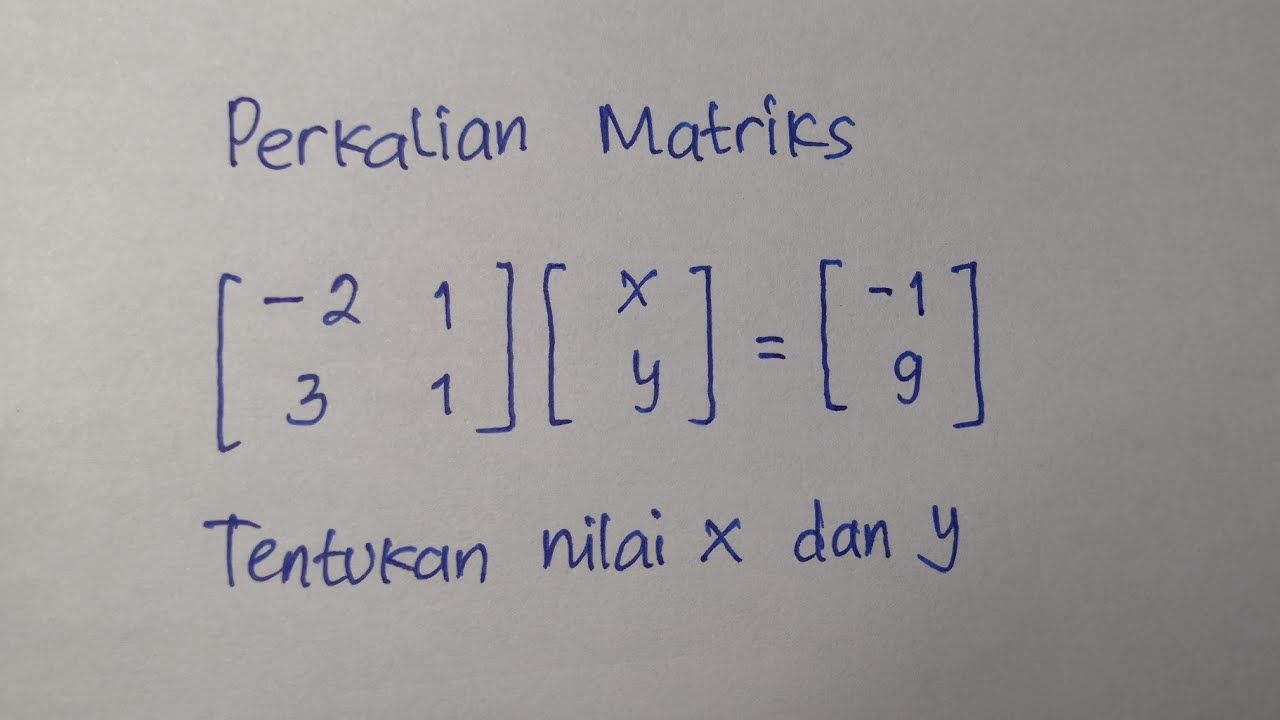 Perkalian Matriks
[-2 1] [x] = [-1]
[3 1] [y] [9]
Tentukan nilai x dan y